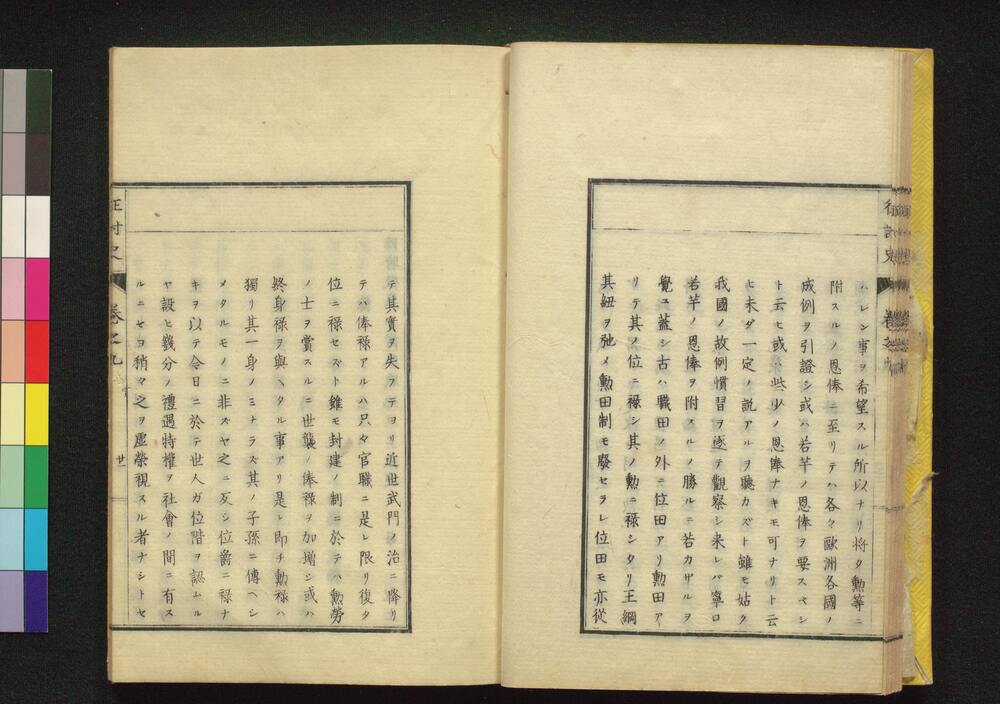 ハレン事ヲ希望スル所以ナリ将タ勲等ニ
附スルノ恩俸ニ至リテハ各々歐洲各國ノ
成例ヲ引證シ或ハ若芉ノ恩俸ヲ要スベシ
ト云ヒ或ハ些少ノ恩俸ナキモ可ナリト云
ヒ未ダ一定ノ説アルヲ聽カズト雖モ姑ク
我國ノ故例慣習ヲ逐テ觀察シ来レバ寧ロ
若芉ノ恩俸ヲ附スルノ勝ルニ若カザルヲ
覺ユ蓋シ古ハ職田ノ外ニ位田アリ勲田ア
リテ其ノ位ニ禄シ其ノ勲ニ禄シタリ王綱
其紐ヲ弛メ勲田制モ廢セラレ位田モ亦從
テ其實ヲ失フテヨリ近世武門ノ治ニ降リ
テハ俸禄アルハ只々官職ニ是レ限リ復タ
位ニ禄セズト雖モ封建ノ制ニ於テハ勲勞
ノ士ヲ賞スルニ世襲ノ俸禄ヲ加増シ或ハ
終身禄ヲ與ヘタル事アリ是レ即チ勲禄ハ
獨リ其一身ノミナラズ其ノ子孫ニ傳ヘシ
メタルモノニ非ズヤ之ニ反シ位爵ニ禄ナ
キヲ以テ令日ニ於テ世人ガ位階ヲ認ムル
ヤ設ヒ幾分ノ禮遇特權ヲ社會ノ間ニ有ス
ルニセヨ稍々之ヲ虚榮視スル者ナシトセ
卷之九
廿一